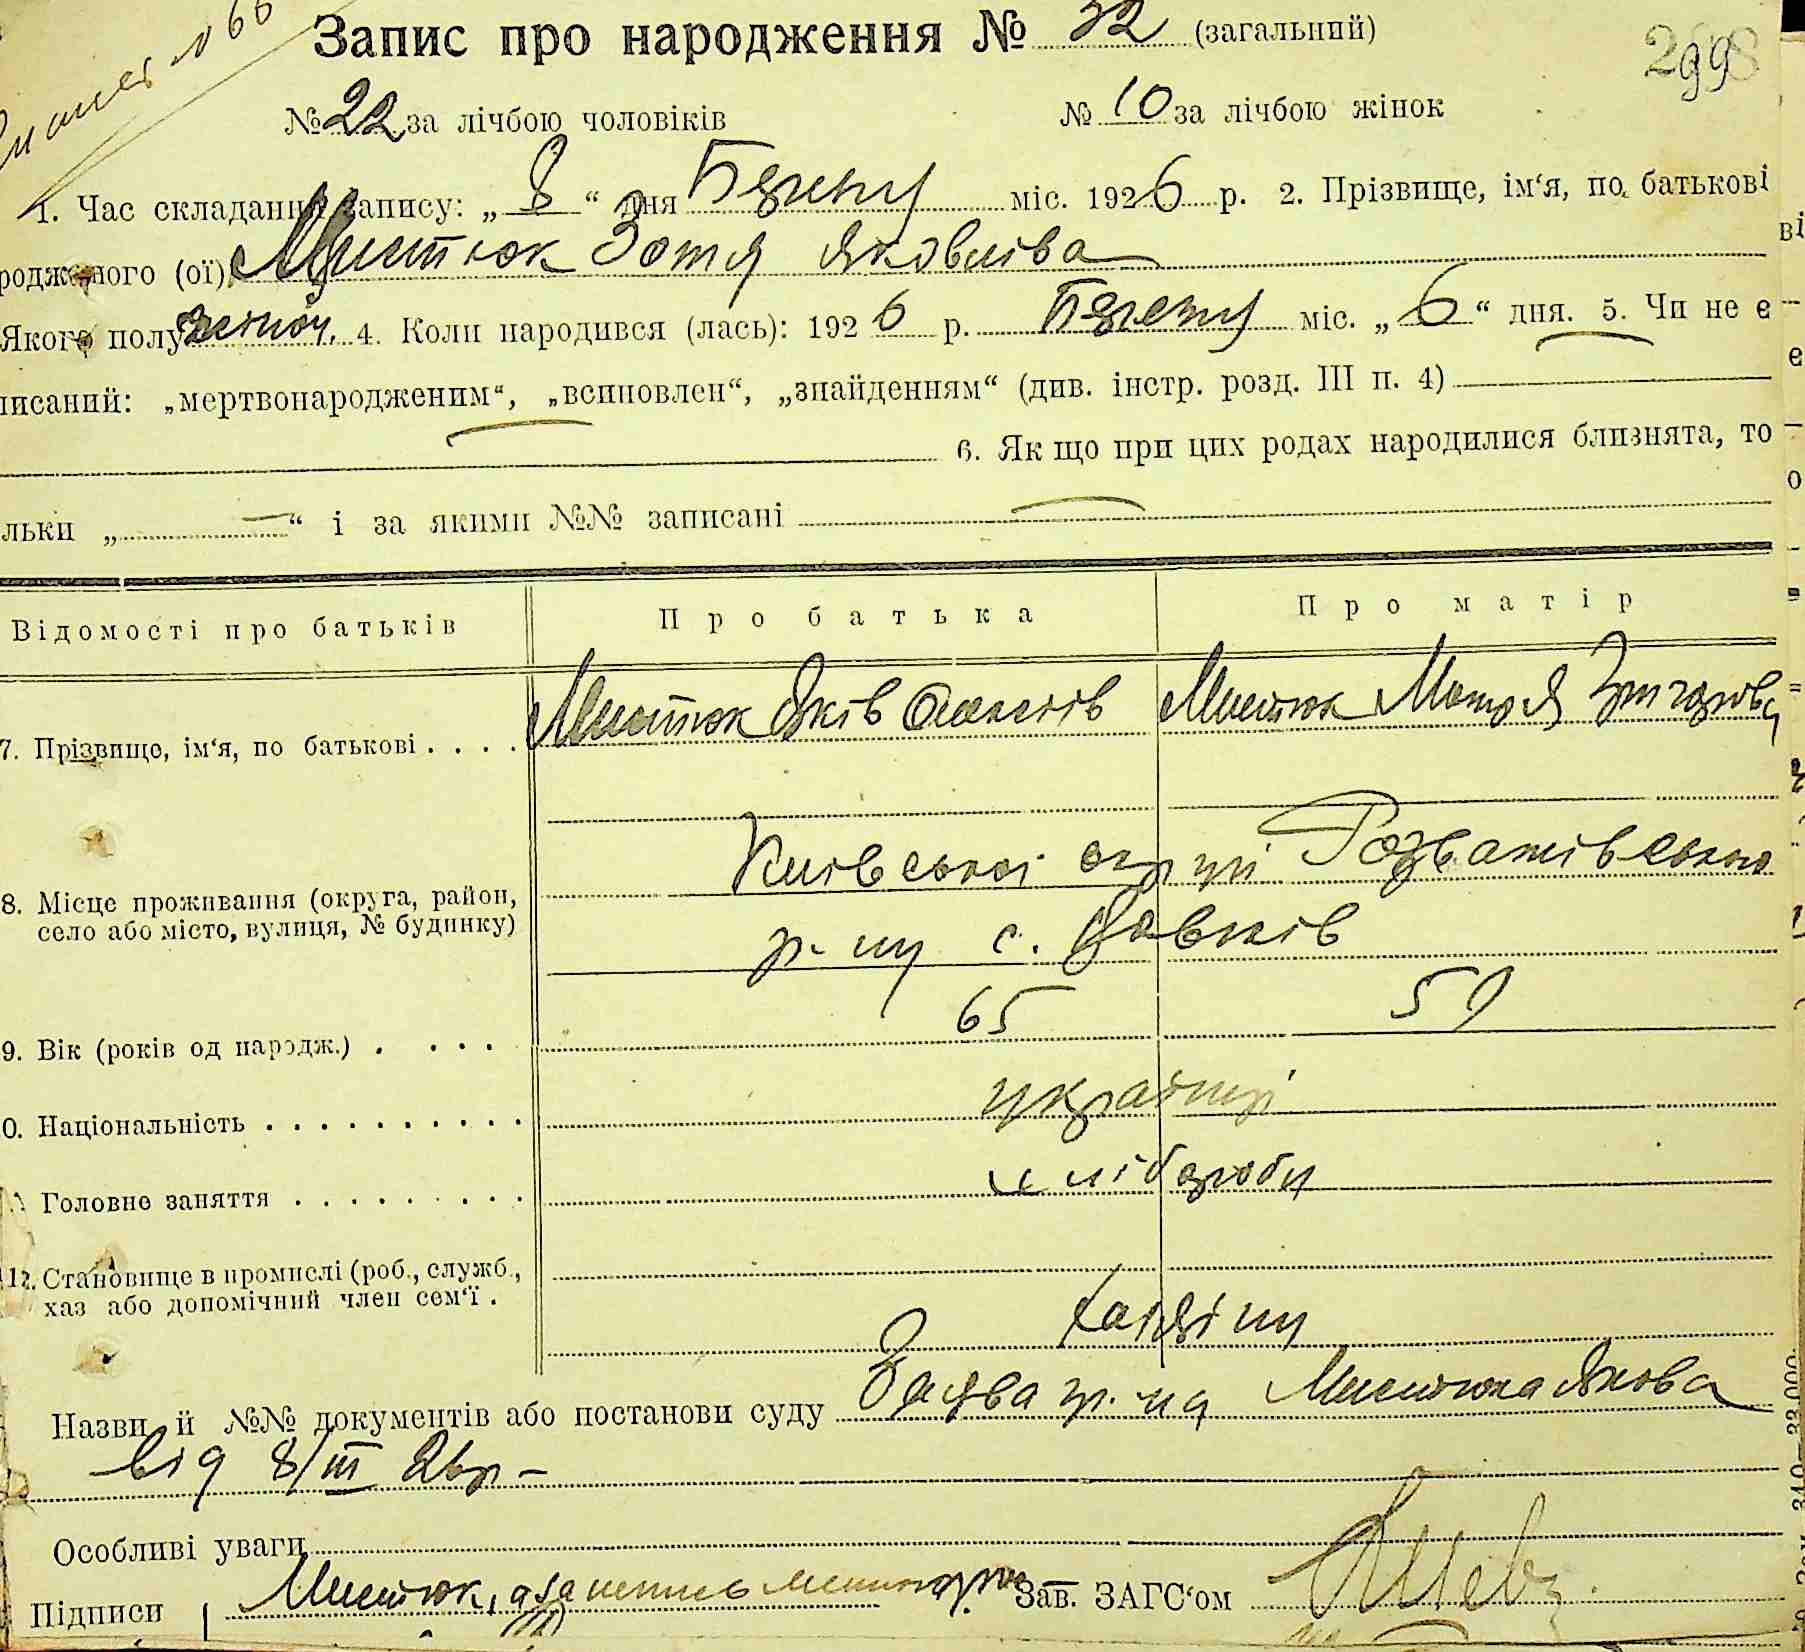 Запис про народження № 32 (загальний)
299
№ 22 за лічбою чоловіків № 10 за лічбою жінок
1. Час складання запису: „ 8 “ дня Березня міс. 1926 р. 2. Прізвище, ім‘я, по батькові
родженого (ої) Мистюк Зотя Яковліва
Якого полу жіноч. 4. Коли народився (лась): 1926 р. Березня міс. „ 6 “ дня. 5. Чи не є
писаний: „мертвонародженим“, „всиновлен“, „знайденням“ (див. інстр. розд. III п. 4)
6. Як що при цих родах народилися близнята, то
льки „ — “ і за якими №№ записані —
Відомості про батьків Про батька Про матір
7. Прізвище, ім‘я, по батькові . . . . Мистюк Яків Мистюк Мотря Григорова
8. Місце проживання (округа, район, село або місто, вулиця, № будинку) Київської округи Розважівського
р-ну с.
9. Вік (років од народж.) . . . . 65 59
0. Національність . . . . . . . . . . українці
Головне заняття . . . . . . . . . хлібороби
12. Становище в промислі (роб., служб., хаз або допомічний член сем‘ї .
Назви й №№ документів або постанови суду Заява гр-на Мистюка Якова
від 8/III 26р –
Особливі уваги
Підписи Мистюк, Зав. ЗАГС‘ом